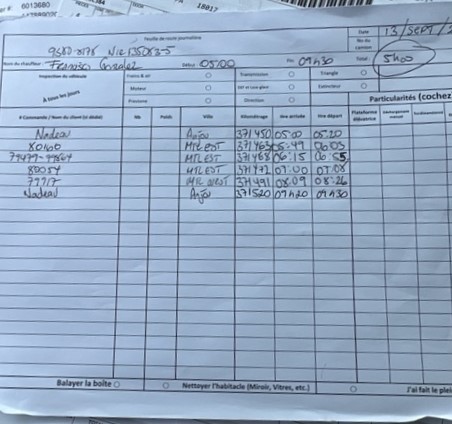 6013680
18017
Feuille de route journalière
Date 13/Sept/2
9580-8178 NIR 1350835
No du camion
Nom du chauffeur: Début 05:00 Fin 09h30 Total 5h00
Inspection du véhicule
À tous les jours
Freins & air Transmission Triangle
Moteur Extincteur
Pression Direction
Particularités (cochez
# Commande / Nom du client (si dédié) Nb Poids Ville Kilométrage Hre arrivée Hre départ Plateforme élévatrice
Nadeau Anjou 371450 05:00 05:20
80160 MTL EST 371463 05:49 06:03
MTL EST 371468 06:15 06:55
80054 MTL EST 371472 07:00 07:08
77717 371491 08:09 08:26
Nadeau Anjou 371520 09h20 09h30
Balayer la boîte Nettoyer l'habitacle (Miroir, Vitres, etc.) J'ai fait le plei